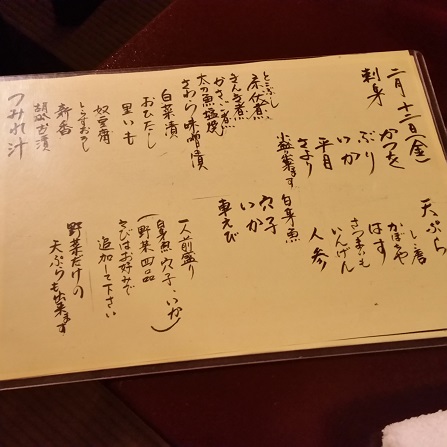 二月十二日(金)
刺身
かつを
ぶり
いか
平目
さより
小盛出来ます
とこぶし
きんき煮
太刀魚塩焼
さわら味噌漬
白菜漬
おひたし
里いも
奴豆腐
とうすおろし
新香
胡瓜ガ漬
つみれ汁
天ぷら
しし唐
かぼちゃ
はす
さつまいも
いんげん
人参
白身魚
穴子
いか
車えび
一人前盛り
(白身魚 穴子、いか
野菜四品)
えびはお好みで
追加して下さい
野菜だけの
天ぷらも出来ます